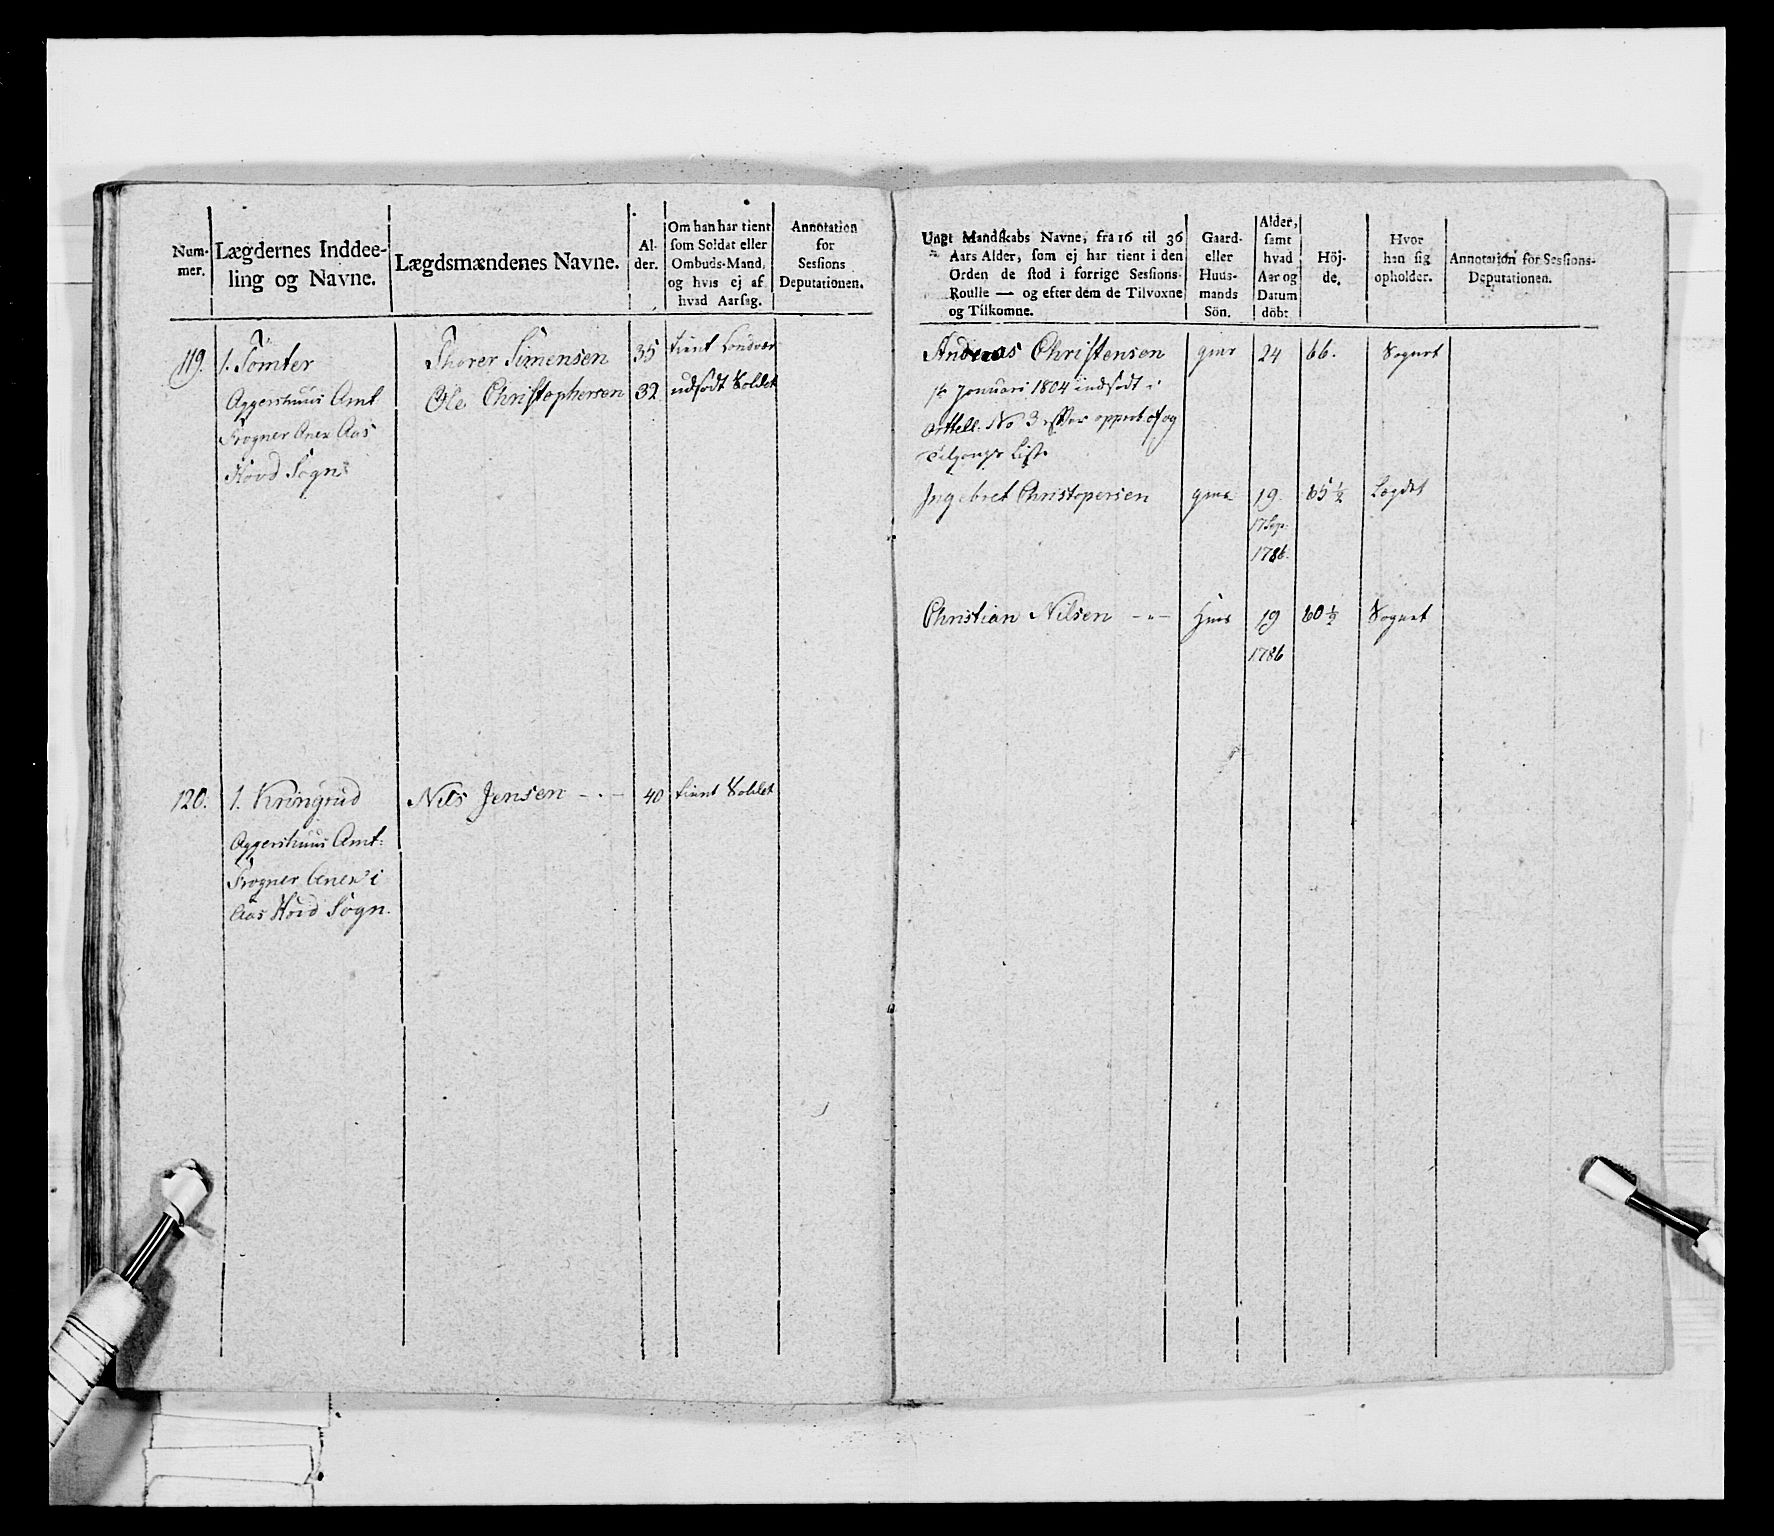 Num-
mer.
Lægdernes Inddee-
ling og Navne.
Lægdsmændenes Navne.
Al-
der.
Om han har tient
som Soldat eller
Ombuds-Mand,
og hvis ej af
hvad Aarsag.
Annotation
for
Sessions
Deputationen.
119.
1. Tomter
Aggershuus Amt
Frogner Anex Aas
Hovd Sogn
Thorer Simensen
35
tient Landvær
Ole Christophersen
32
udsødt Soldat
120.
1. Kringrud
Aggershuus Amt:
Frogner Anex i
Aas Hovd Sogn.
Nils Jensen
40
tient Soldat
Ungt Mandskabs Navne, fra 16 til 36
Aars Alder, som ej har tient i den
Orden de stod i forrige Sessions-
Roulle — og efter dem de Tilvoxne
og Tilkomne.
Gaard-
eller
Huus-
mands
Sön.
Alder,
samt
hvad
Aar og
Datum
döbt
Höj-
de.
Hvor
han sig
opholder.
Annotation for Sessions-
Deputationen.
Andreas Christensen
gmr
24
66.
Sognet
Januari 1804 indsødt i
No 3 efter og
Liste
Ingebret Christopersen
gms
19.
65 1/2
Lægdet
17 Sep:
1786.
Christian Nilsen
Hms
19
60 1/2
Sognet
1786